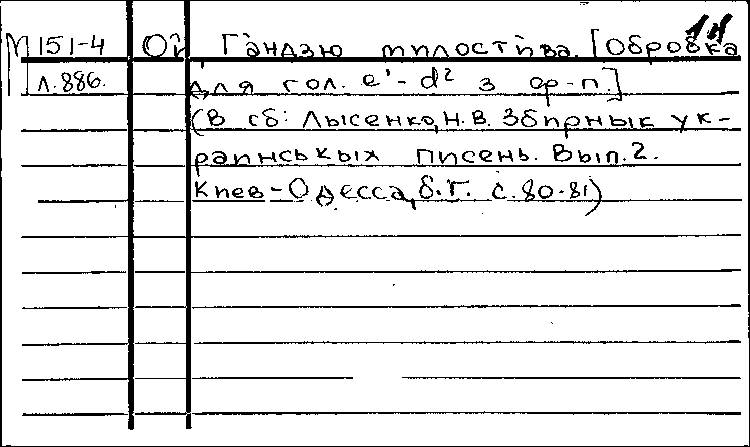 14
М 151-4 Ой, Гандзю милостива. [Обробка
Л.886. для гол. e'-d² з ф-п.]
(В сб: Лысенко, Н.В. Збирнык ук-
раинськых писень. Вып.2.
Киев-Одесса, б.г. с.80-81)